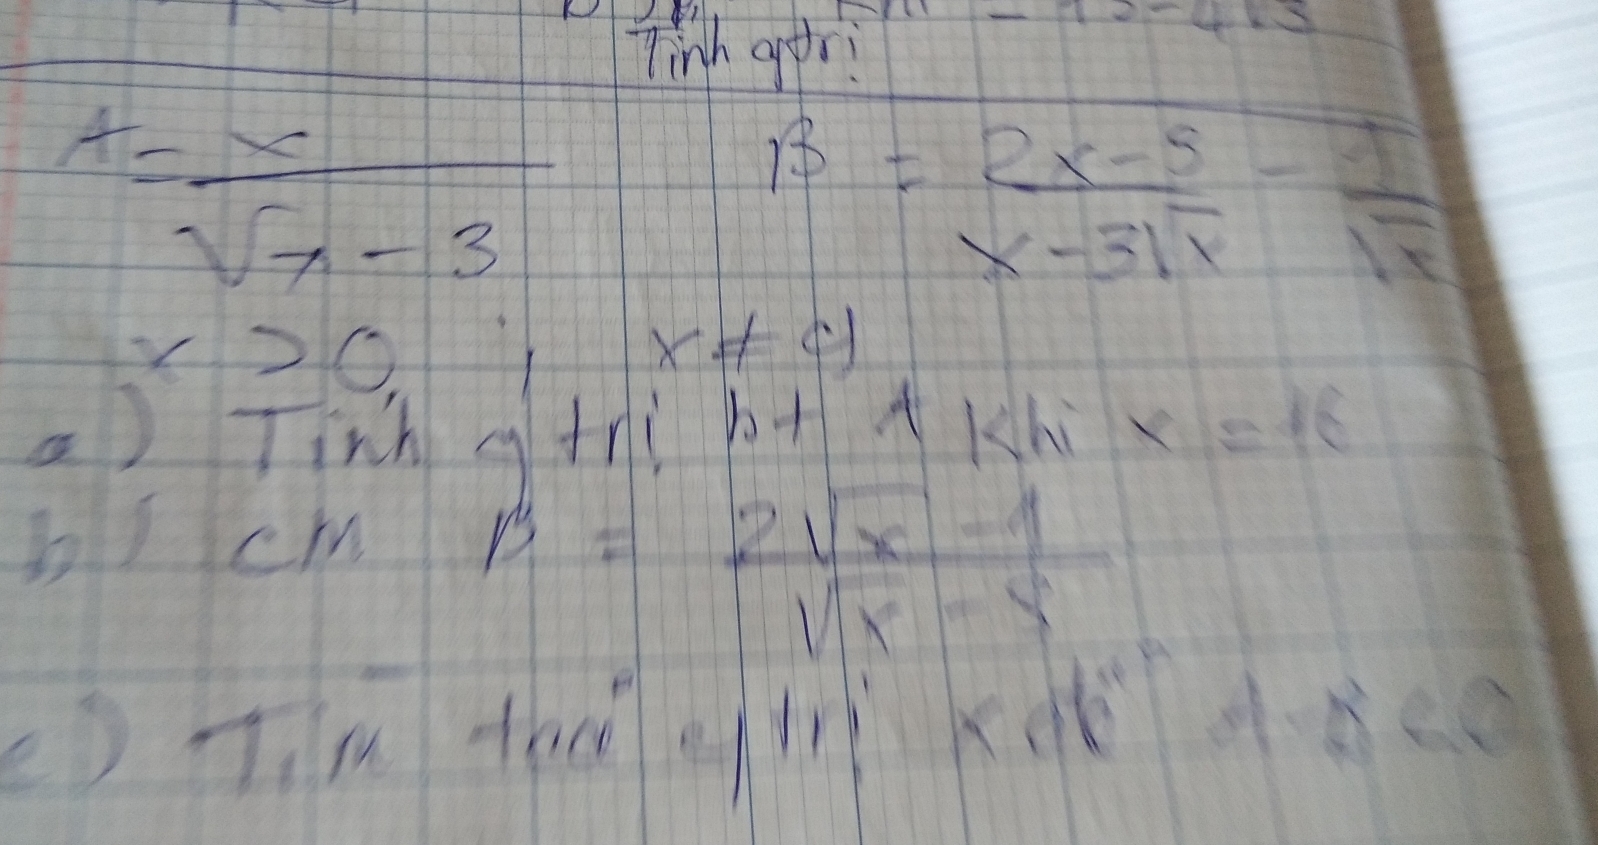 Tính gtrị
A = x / √x - 3 B = 2x - 5 / x - 3√x - 1 / √x
x > 0 ; x ≠ 9
a) Tính gtrị bt A khi x = 16
b) CM B = 2√x - 1 / √x -
c) Tìm tất gtrị x để A - B < 0